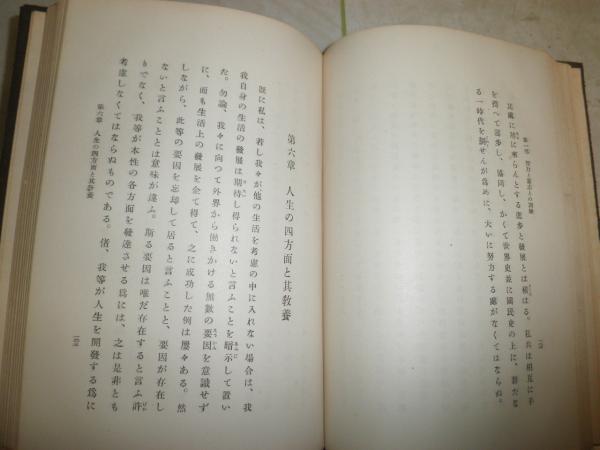 第一部 智力と意志との訓練
其處に將に來らんとする進歩と發展とは横はる。私共は相互に手
を携へて進歩し、協同し、かくて世界史並に國民史の上に、新たな
る一時代を劃せんが爲めに、大いに努力する處がなくてはならぬ。
第六章 人生の四方面と其教養
既に私は、若し我々が他の生活を考慮の中に入れない場合は、我
我自身の生活の發展は期待し得られないと言ふことを暗示して置い
た。勿論、我々に向つて外界から働きかける無數の要因を意識せず
に、而も生活上の發展を企て得て、之に成功した例は屢々ある。然
しながら、此等の要因を忘却して居ると言ふことと、要因が存在し
ないと言ふこととは意味が違ふ。斯る要因は唯だ存在すると言ふ許
りでなく、我等が本性の各方面を發達させる爲には、之は是非とも
考慮しなくてはならぬものである。偖、我等が人生を開發する爲に
第六章 人生の四方面と其教養